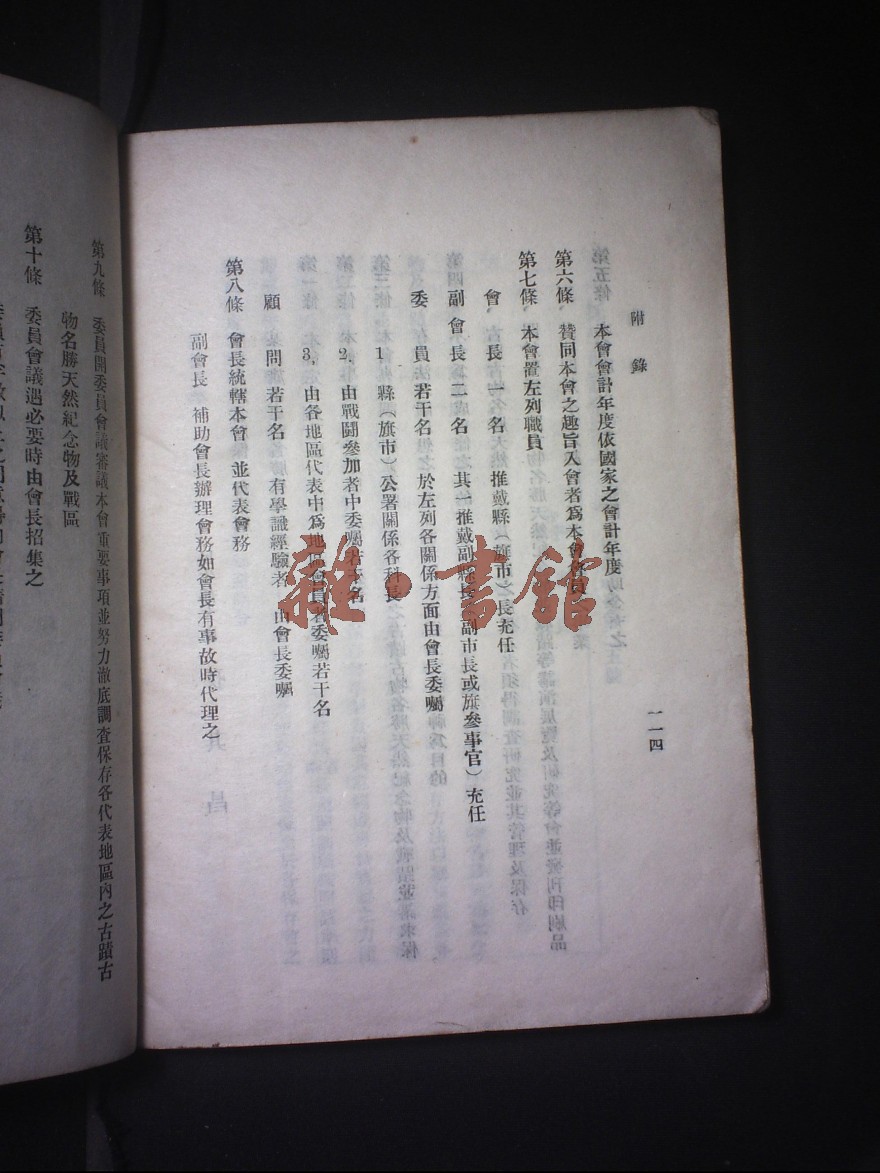 附錄
一一四
本會會計年度依國家之會計年度
第六條 贊同本會之趣旨入會者爲本會會員
第七條 本會置左列職員
會 長 一 名 推戴縣(旗市)之長充任
副 會 長 二 名 其一推戴副縣長(副市長或旗參事官)充任
委 員 若干名 於左列各關係方面由會長委囑
1,縣(旗市)公署關係各科長
2,由戰鬪參加者中委囑若干名
3,由各地區代表中爲地區會員者委囑若干名
顧 問 若干名 有學識經驗者 由會長委囑
第八條 會長統轄本會並代表會務
副會長 補助會長辦理會務如會長有事故時代理之
第九條 委員開委員會議審議本會重要事項並努力澈底調査保存各代表地區內之古蹟古
物名勝天然紀念物及戰區
第十條 委員會議遇必要時由會長招集之
雜·書館